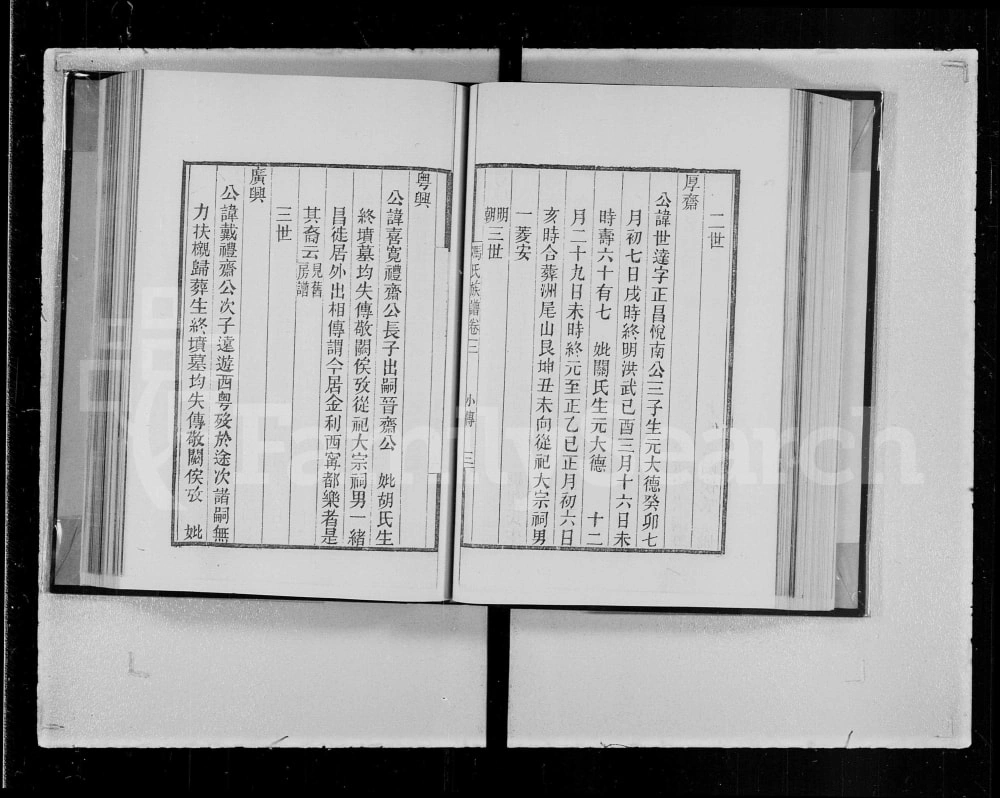 二世
厚齋
公諱世達字正昌悅南公三子生元大德癸卯七
月初七日戌時終明洪武己酉三月十六日未
時壽六十有七　妣關氏生元大德　十二
月二十九日未時終元至正乙巳正月初六日
亥時合葬洲尾山艮坤丑未向從祀大宗祠男
一菱安
明朝三世
馮氏族譜卷三　小傳　三
粤興
公諱喜寬禮齋公長子出嗣晉齋公　妣胡氏生
終墳墓均失傳敬闕俟攷從祀大宗祠男一緒
昌徙居外出相傳謂今居金利西寗都樂者是
其裔云見舊房譜
三世
廣興
公諱戴禮齋公次子遠遊西粤歿於途次諸嗣無
力扶櫬歸葬生終墳墓均失傳敬闕俟攷　妣
FamilySearch